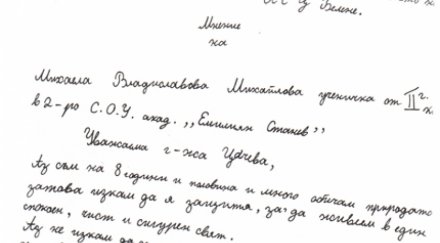 Белене.
Мнение
на
Михаела Владиславова Михайлова ученичка от II г. х.
в 2-ро С.О.У. акад. ,,Емилиян Станев,,
Уважаема г-жа Цачева,
Аз съм на 8 години и половина и много обичам природата
затова искам да я защитя, за да живеем в един
спокоен, чист и сигурен свят.
Аз не искам да